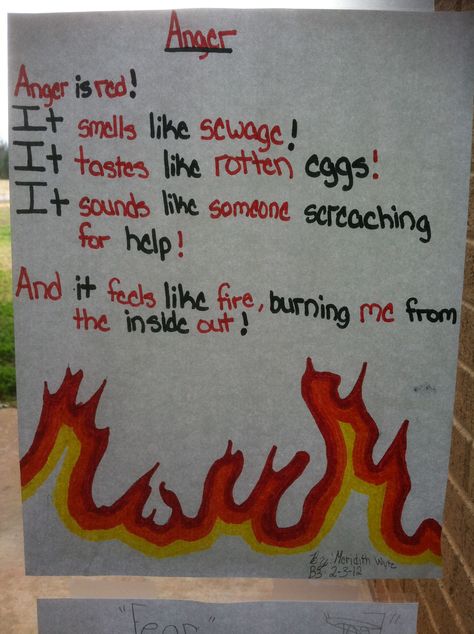 Anger
Anger is red!
It smells like sewage!
It tastes like rotten eggs!
It sounds like someone screaching
for help!
And it feels like fire, burning me from
the inside out!
By: Meridith
B3 2-3-12
"Fear"